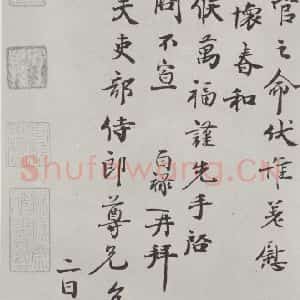 管之命伏惟差慰
懷春和
候萬福謹先手啓
問不宣 百祿再拜
夫吏部侍郎尊兄台
二日
Shufawang.CN